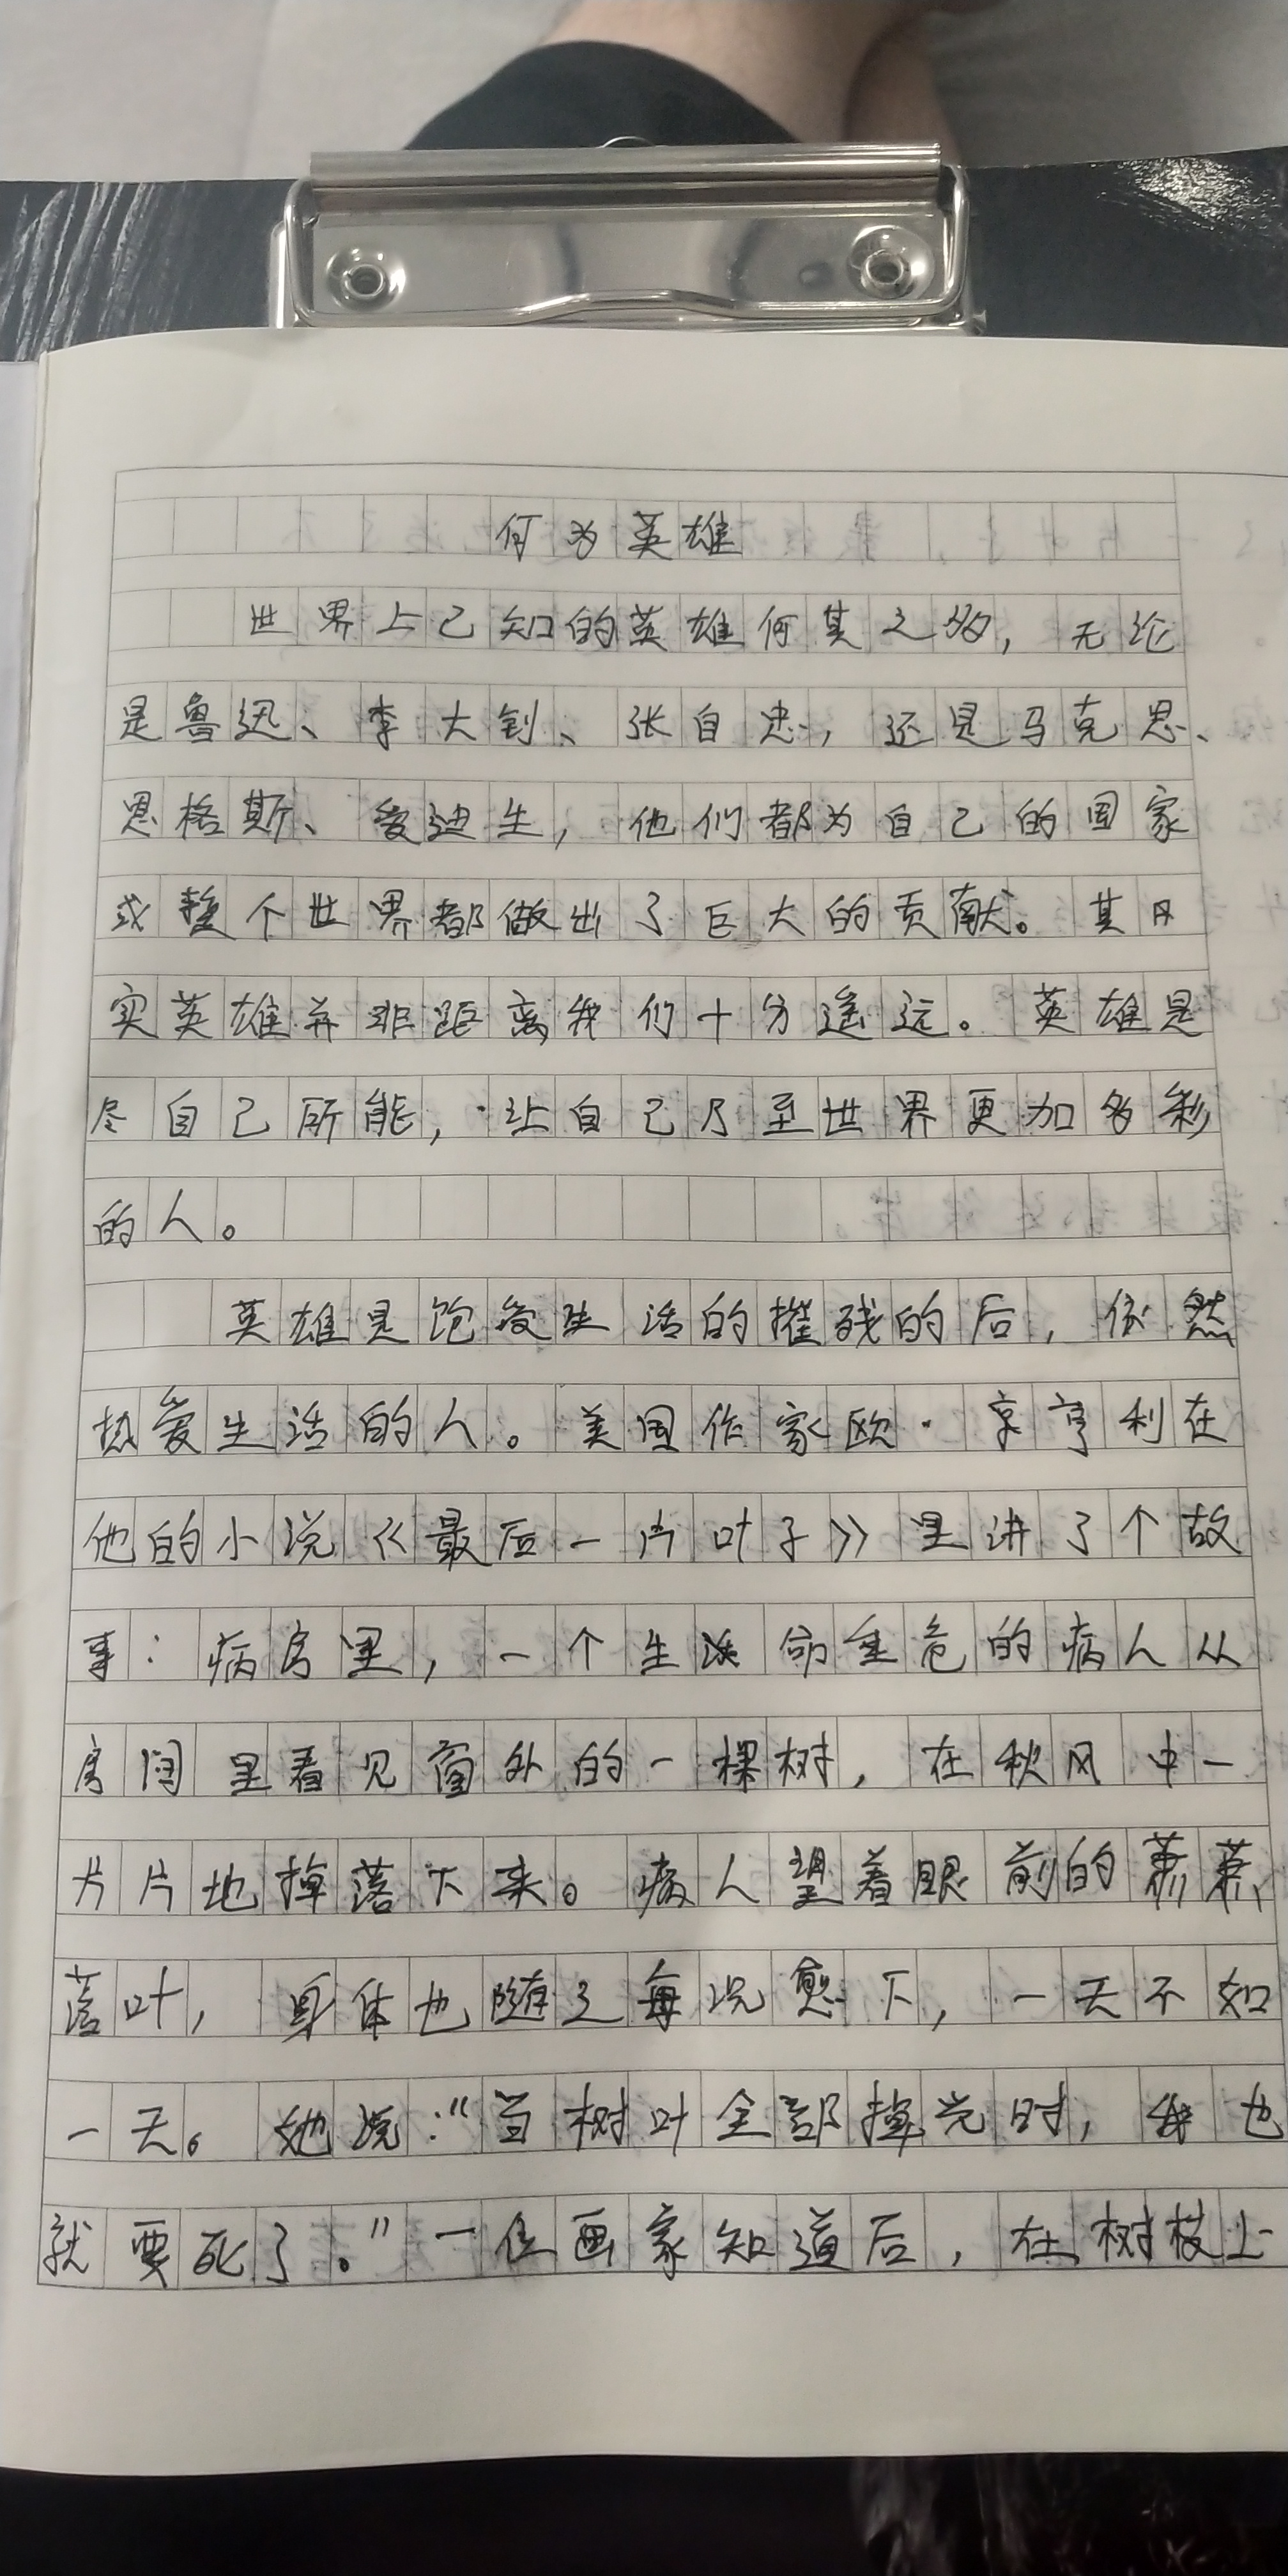 何为英雄
世界上已知的英雄何其之多，无论
是鲁迅、李大钊、张自忠，还是马克思、
恩格斯、爱迪生，他们都为自己的国家
或整个世界都做出了巨大的贡献。其
实英雄并非距离我们十分遥远。英雄是
尽自己所能，让自己乃至世界更加多彩
的人。
英雄是饱受生活的摧残的后，依然
热爱生活的人。美国作家欧·亨利在
他的小说《最后一片叶子》里讲了个故
事：病房里，一个生命垂危的病人从
房间里看见窗外的一棵树，在秋风中一
片片地掉落下来。病人望着眼前的萧萧
落叶，身体也随之每况愈下，一天不如
一天。她说：“当树叶全部掉光时，我也
就要死了。”一位画家知道后，在树枝上